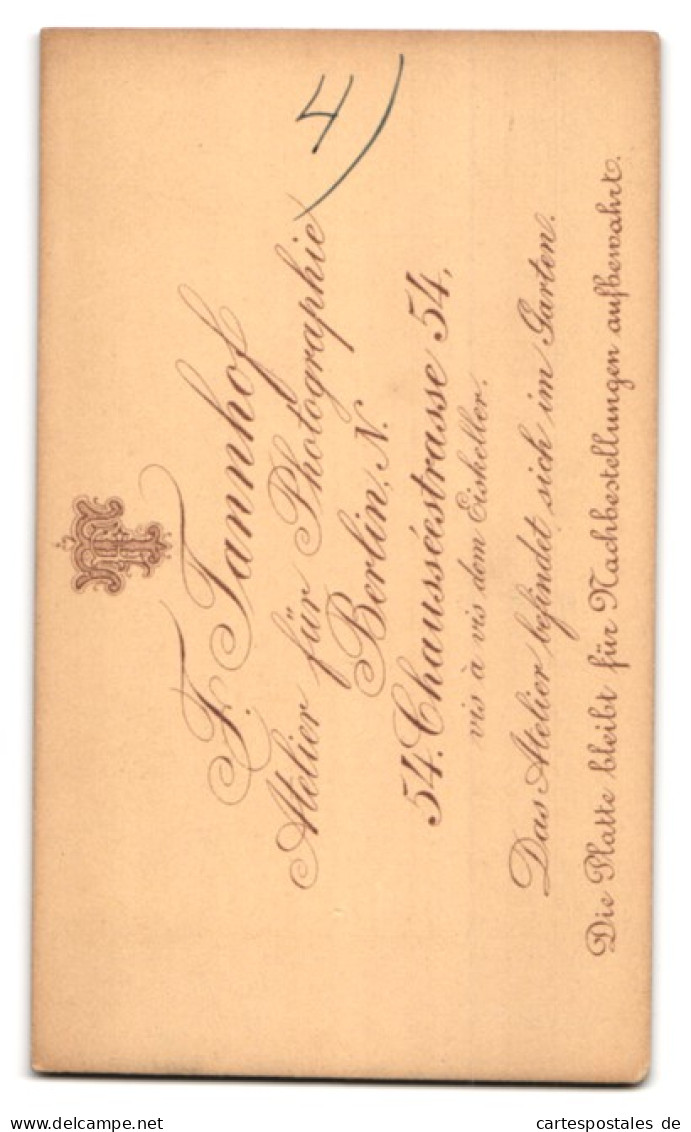 4
F. Tannhof
Atelier für Photographie
Berlin, N.
54. Chausséestrasse 54,
vis à vis dem Eiskeller.
Das Atelier befindet sich im Garten.
Die Platte bleibt für Nachbestellungen aufbewahrt.
www.delcampe.net
cartespostales de